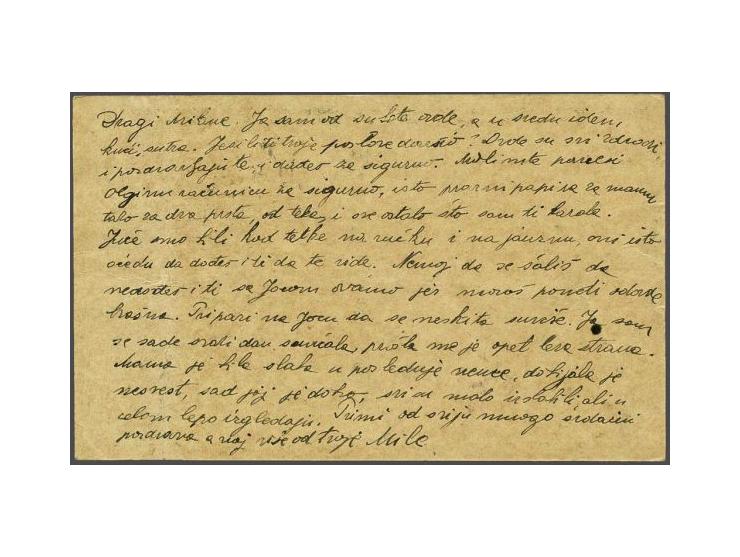 Dragi Milane. Ja sam od subote ovde, a u sredu idem
kući, sutra. Jesi li ti tvoje poslove dovršio? Ovde su svi zdravi
i pozdravljaju te, i dođes za sigurno. Molim te ponesi
Olginu računicu za sigurno, isto prazni papira za mamu
talo za dva prsta, od teke, i sve ostalo što sam ti kazala.
Juče smo bili kod tetke na ručku i na jauznu, oni isto
očedu da dođes i ti da te vide. Nemoj da se šališ da
nedođes i ti sa Jocom ovamo jer moraš poneti odavde
brašna. Pripazi na Jocu da se neskita suviše. Ja sam
se sade svaki dan sunčala, prošla me je opet leva strana.
Mama je bila slaba u poslednje vreme, dobijala je
nesvest, sad joj je dobro, svi su malo oslabili ali u
celom lepo izgledaju. Primi od sviju mnogo srdačni
pozdrava a naj više od tvoje Mile